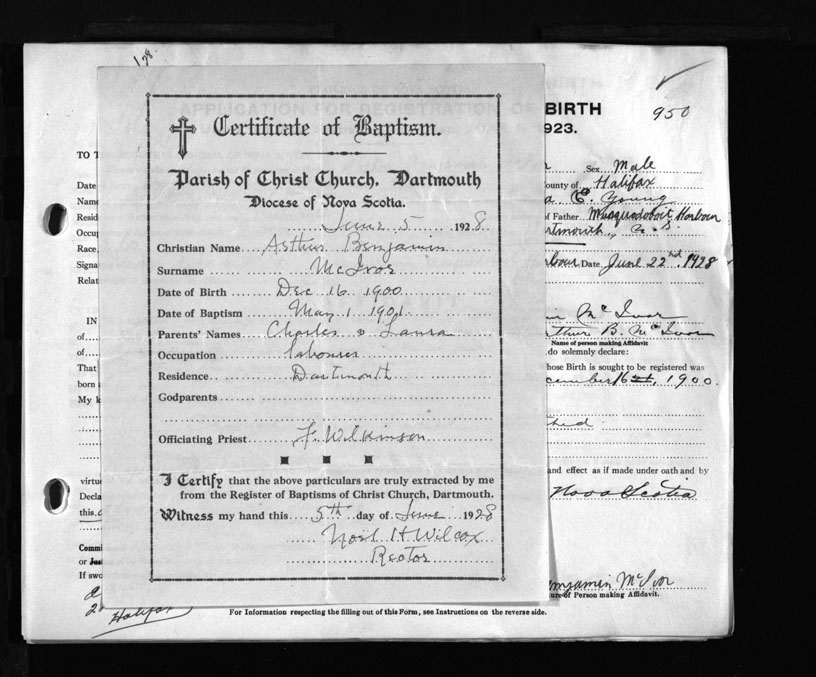 128
BIRTH
950
1923.
Certificate of Baptism.
Parish of Christ Church, Dartmouth
Diocese of Nova Scotia.
June 5 1928
Christian Name Arthur Benjamin
Surname McIvor
Date of Birth Dec 16 1900
Date of Baptism May 1 1901
Parents' Names Charles & Laura
Occupation labourer
Residence Dartmouth
Godparents
Officiating Priest F. Wilkinson
I Certify that the above particulars are truly extracted by me
from the Register of Baptisms of Christ Church, Dartmouth.
Witness my hand this 5th day of June 1928
Noel H Wilcox
Rector
TO T
Date
Name
Resid
Occup
Race,
Signa
Relat
IN
of
of
That
born
My k
virtue
Decla
this
Commi
or Jus
If swo
Halifax
Sex Male
County of Halifax
a C. Young
of Father Musquodoboit Harbour
artmouth, N.S.
arbour Date June 22nd 1928
McIvor
rthur B. McIvor
Name of person making Affidavit
do solemnly declare:
hose Birth is sought to be registered was
cember 16th, 1900.
ched
and effect as if made under oath and by
Nova Scotia
enjamin McIvor
ure of Person making Affidavit.
For Information respecting the filling out of this Form, see Instructions on the reverse side.